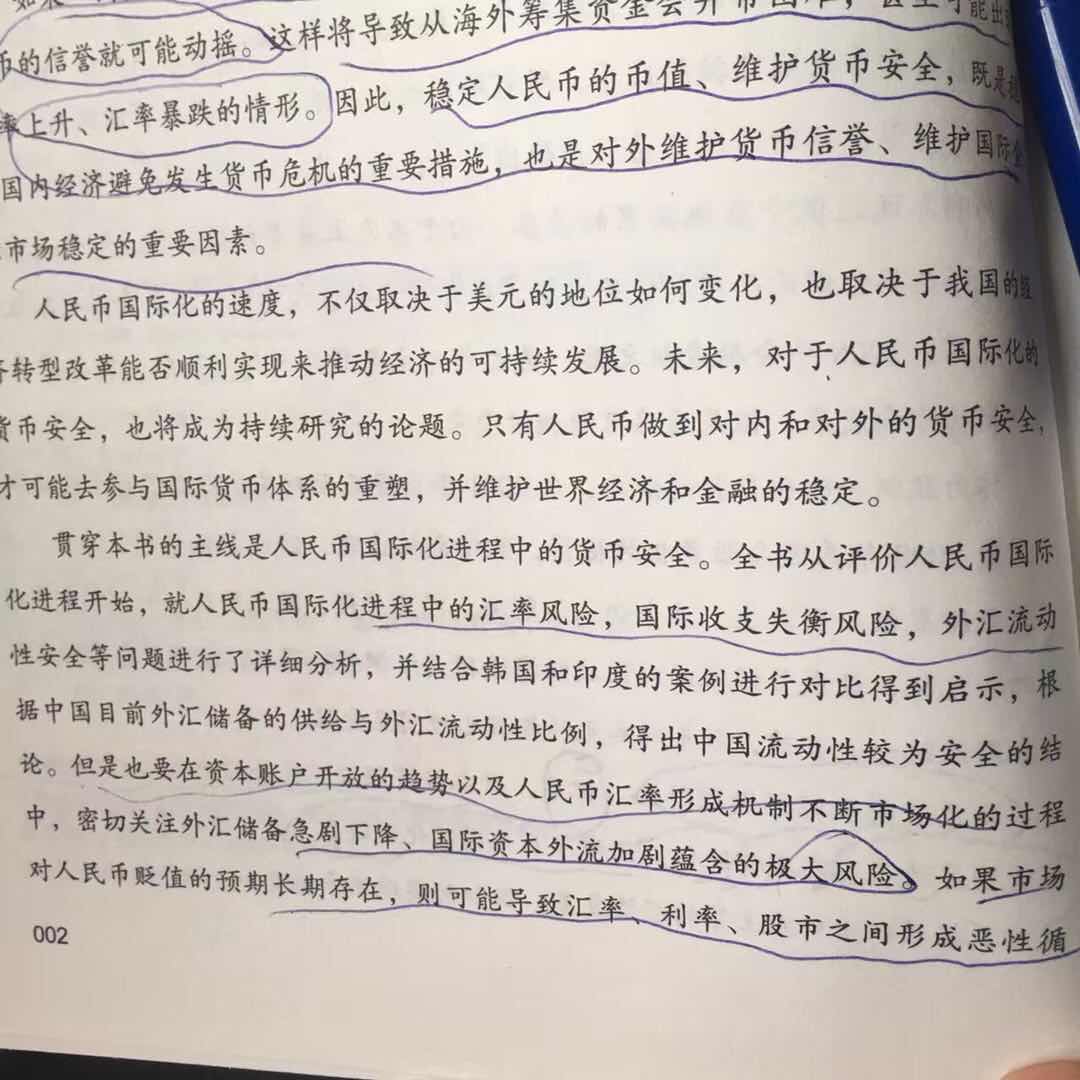 币的信誉就可能动摇。这样将导致从海外筹集资金会异常困难，甚至可能出
率上升、汇率暴跌的情形。因此，稳定人民币的币值、维护货币安全，既是
国内经济避免发生货币危机的重要措施，也是对外维护货币信誉、维护国际金
市场稳定的重要因素。
人民币国际化的速度，不仅取决于美元的地位如何变化，也取决于我国的经
济转型改革能否顺利实现来推动经济的可持续发展。未来，对于人民币国际化的
货币安全，也将成为持续研究的论题。只有人民币做到对内和对外的货币安全，
才可能去参与国际货币体系的重塑，并维护世界经济和金融的稳定。
贯穿本书的主线是人民币国际化进程中的货币安全。全书从评价人民币国际
化进程开始，就人民币国际化进程中的汇率风险，国际收支失衡风险，外汇流动
性安全等问题进行了详细分析，并结合韩国和印度的案例进行对比得到启示，根
据中国目前外汇储备的供给与外汇流动性比例，得出中国流动性较为安全的结
论。但是也要在资本账户开放的趋势以及人民币汇率形成机制不断市场化的过程
中，密切关注外汇储备急剧下降、国际资本外流加剧蕴含的极大风险。如果市场
对人民币贬值的预期长期存在，则可能导致汇率、利率、股市之间形成恶性循
002